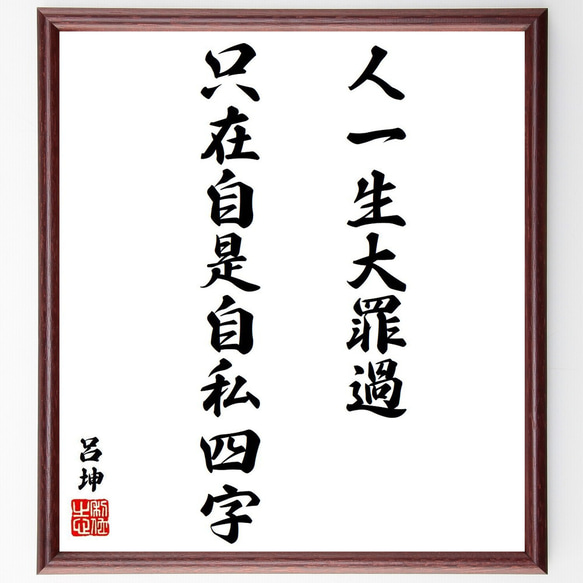 人一生大罪過
只在自是自私四字
呂坤